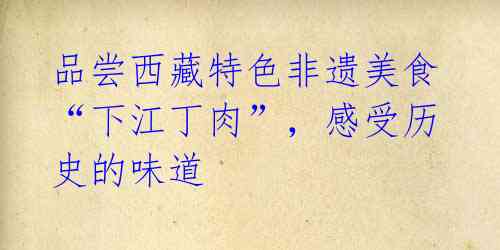 品尝西藏特色非遗美食
“下江丁肉”，感受历
史的味道